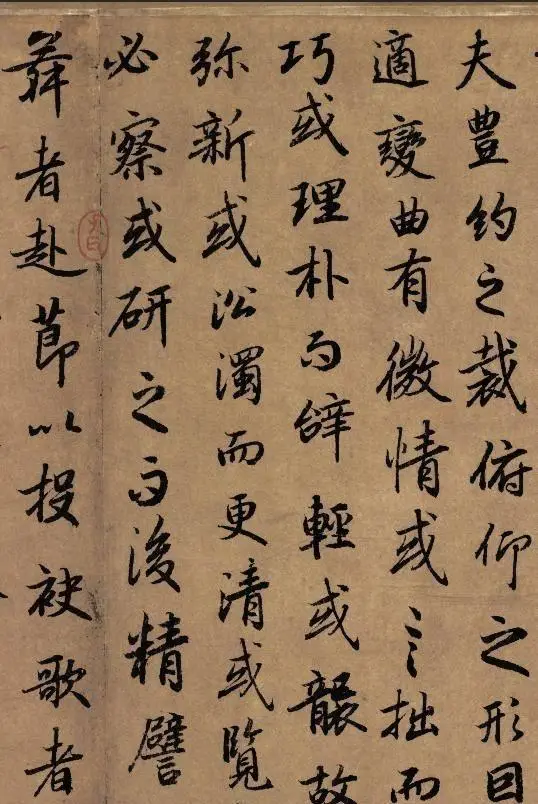 夫豐約之裁俯仰之形因
適變曲有微情或言拙而
巧或理朴而辝輕或襲故
弥新或沿濁而更清或覽
必察或研之而後精譬
舞者赴莭以投袂歌者